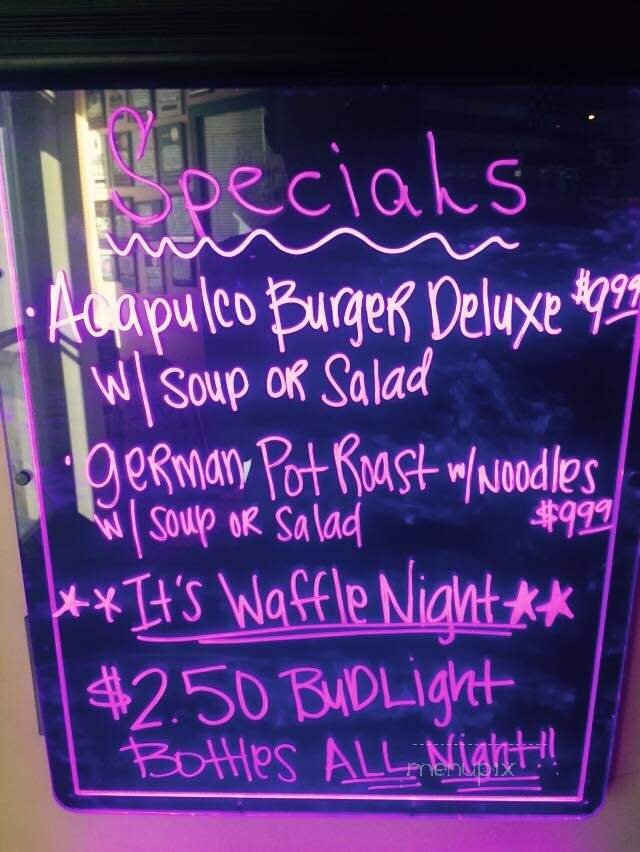 Specials
· Acapulco Burger Deluxe $999
w/ Soup or Salad
· German Pot Roast w/Noodles
w/ Soup or Salad $999
**It's Waffle Night**
$2.50 BudLight
Bottles ALL Night!!
menupix